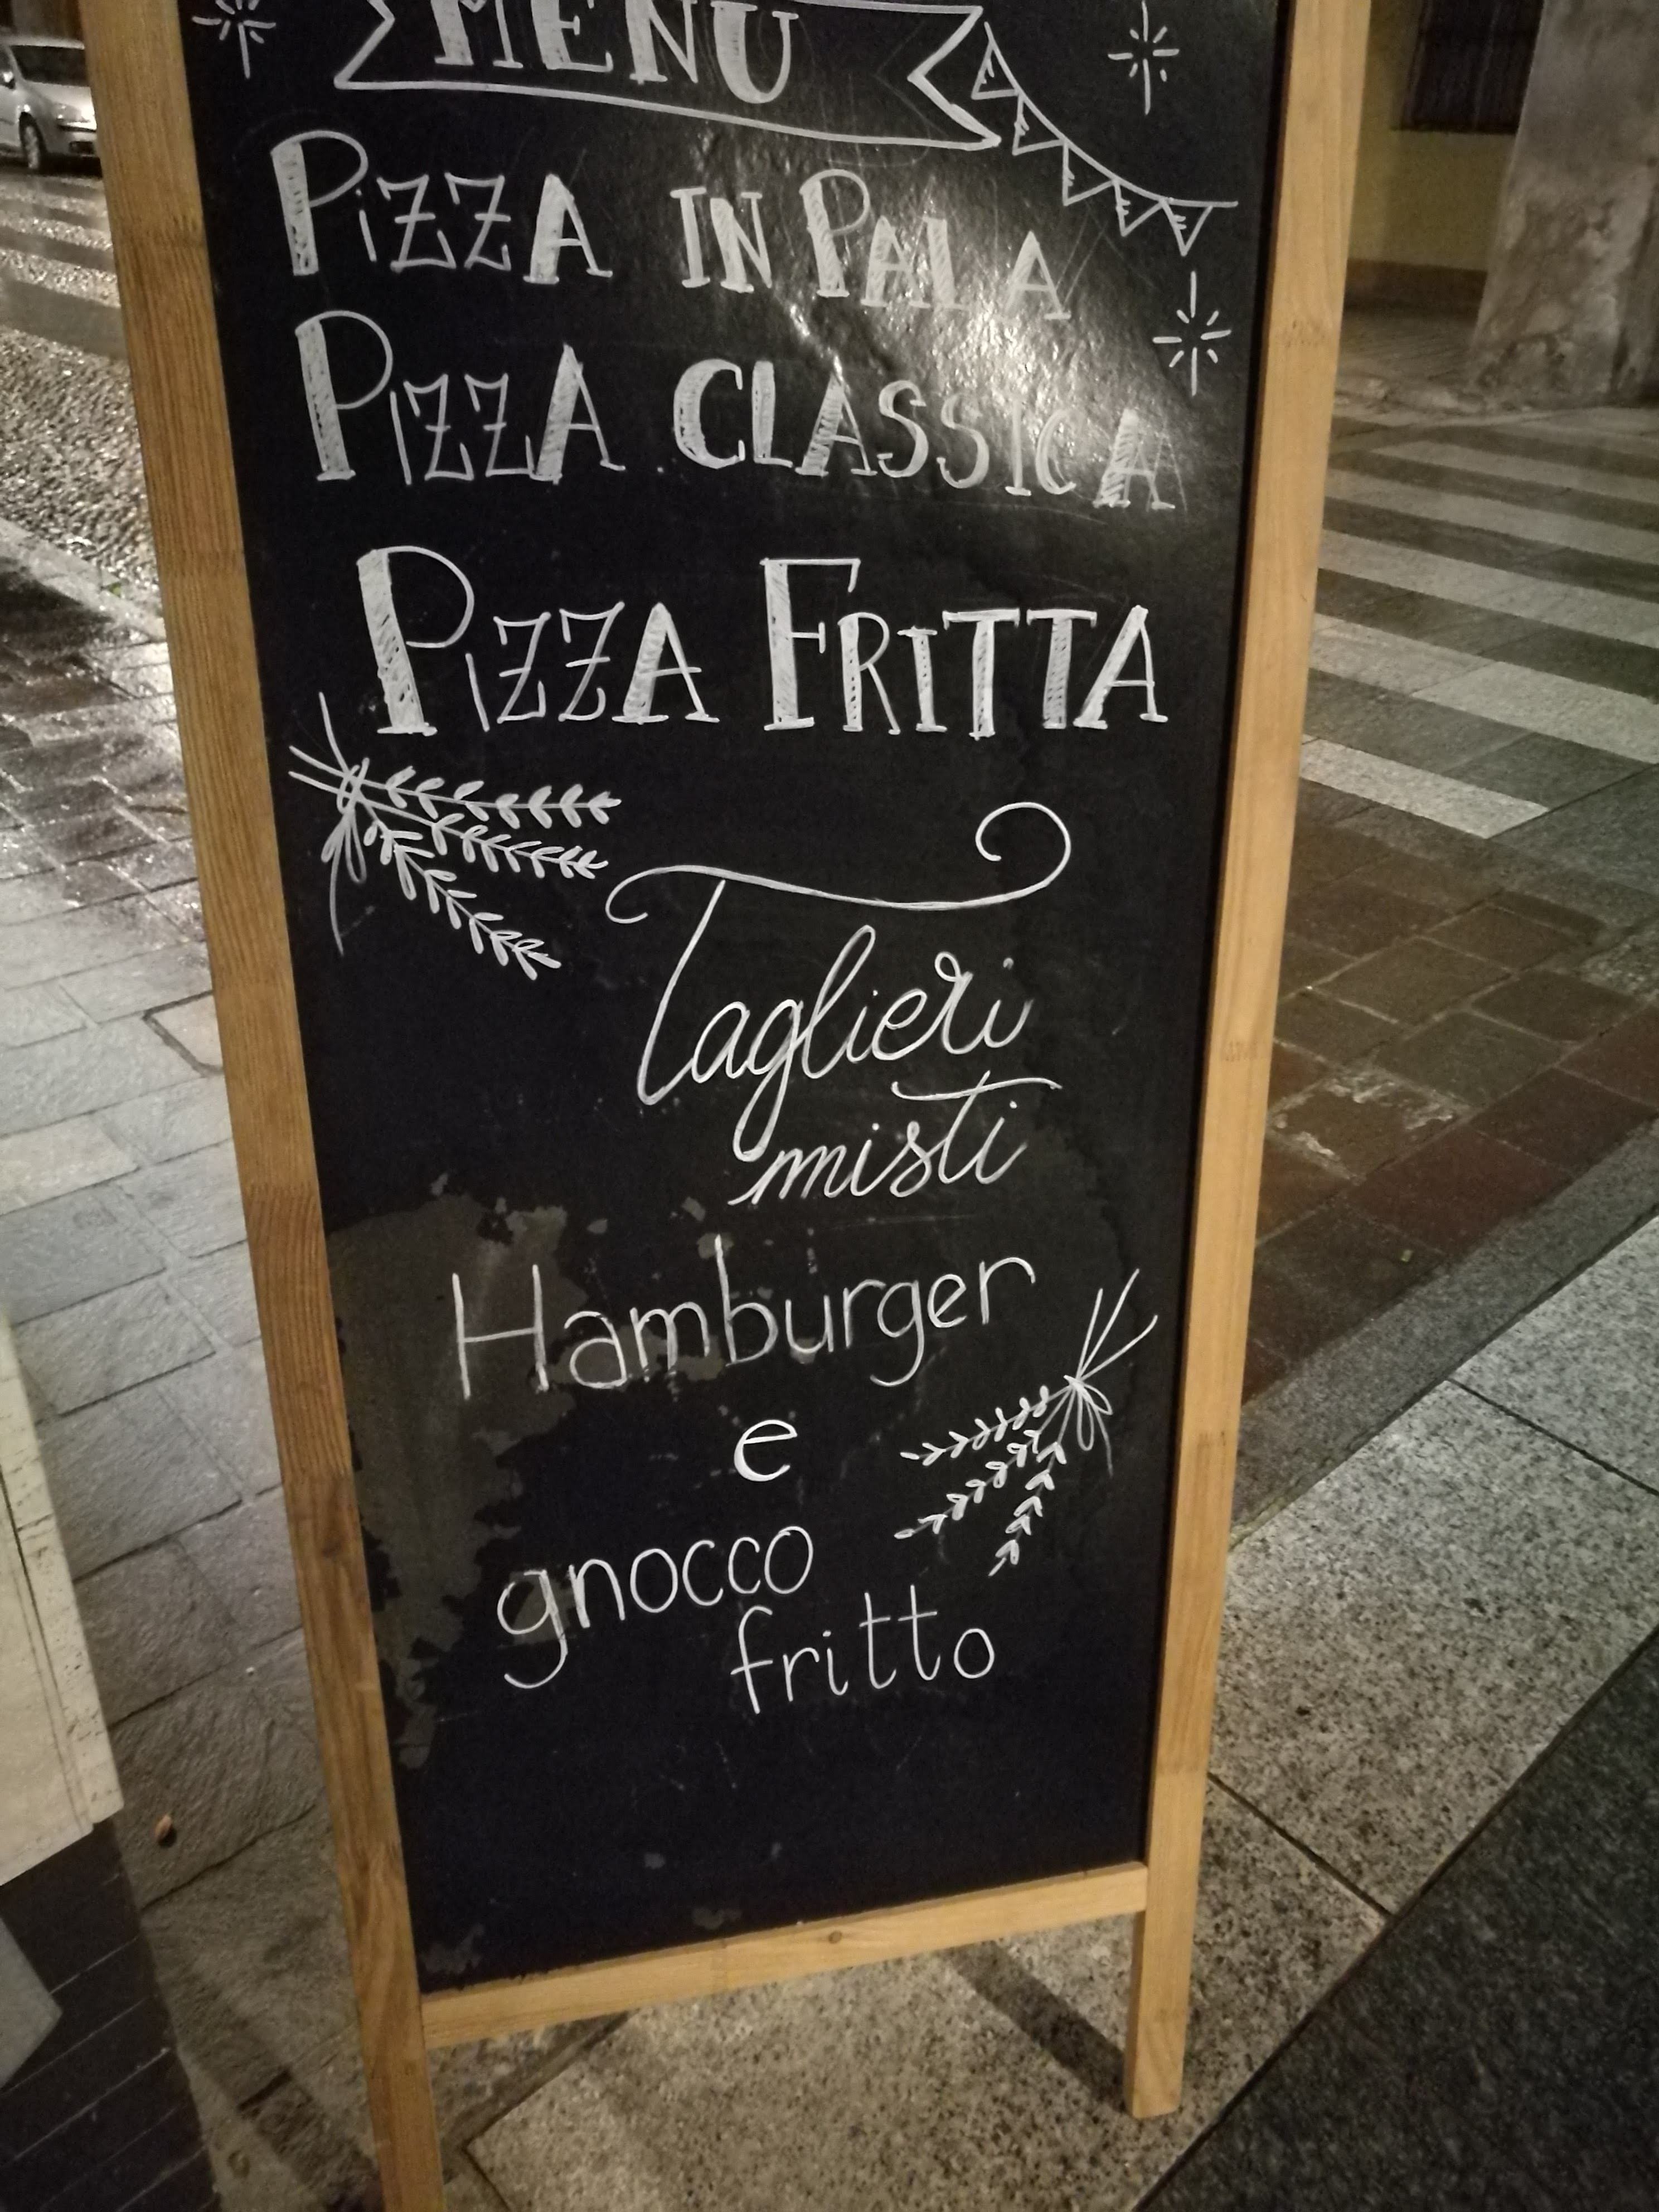 MENU
PIZZA IN PALA
PIZZA CLASSICA
PIZZA FRITTA
Taglieri
misti
Hamburger
e
gnocco
fritto